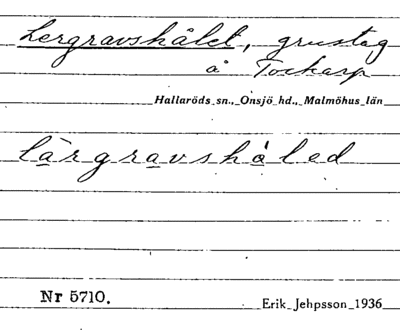 Lergravshålet, grustag
å Tockarp
Hallaröds sn., Onsjö hd., Malmöhus län
lärgravshåled
Nr 5710.
Erik Jehpsson 1936